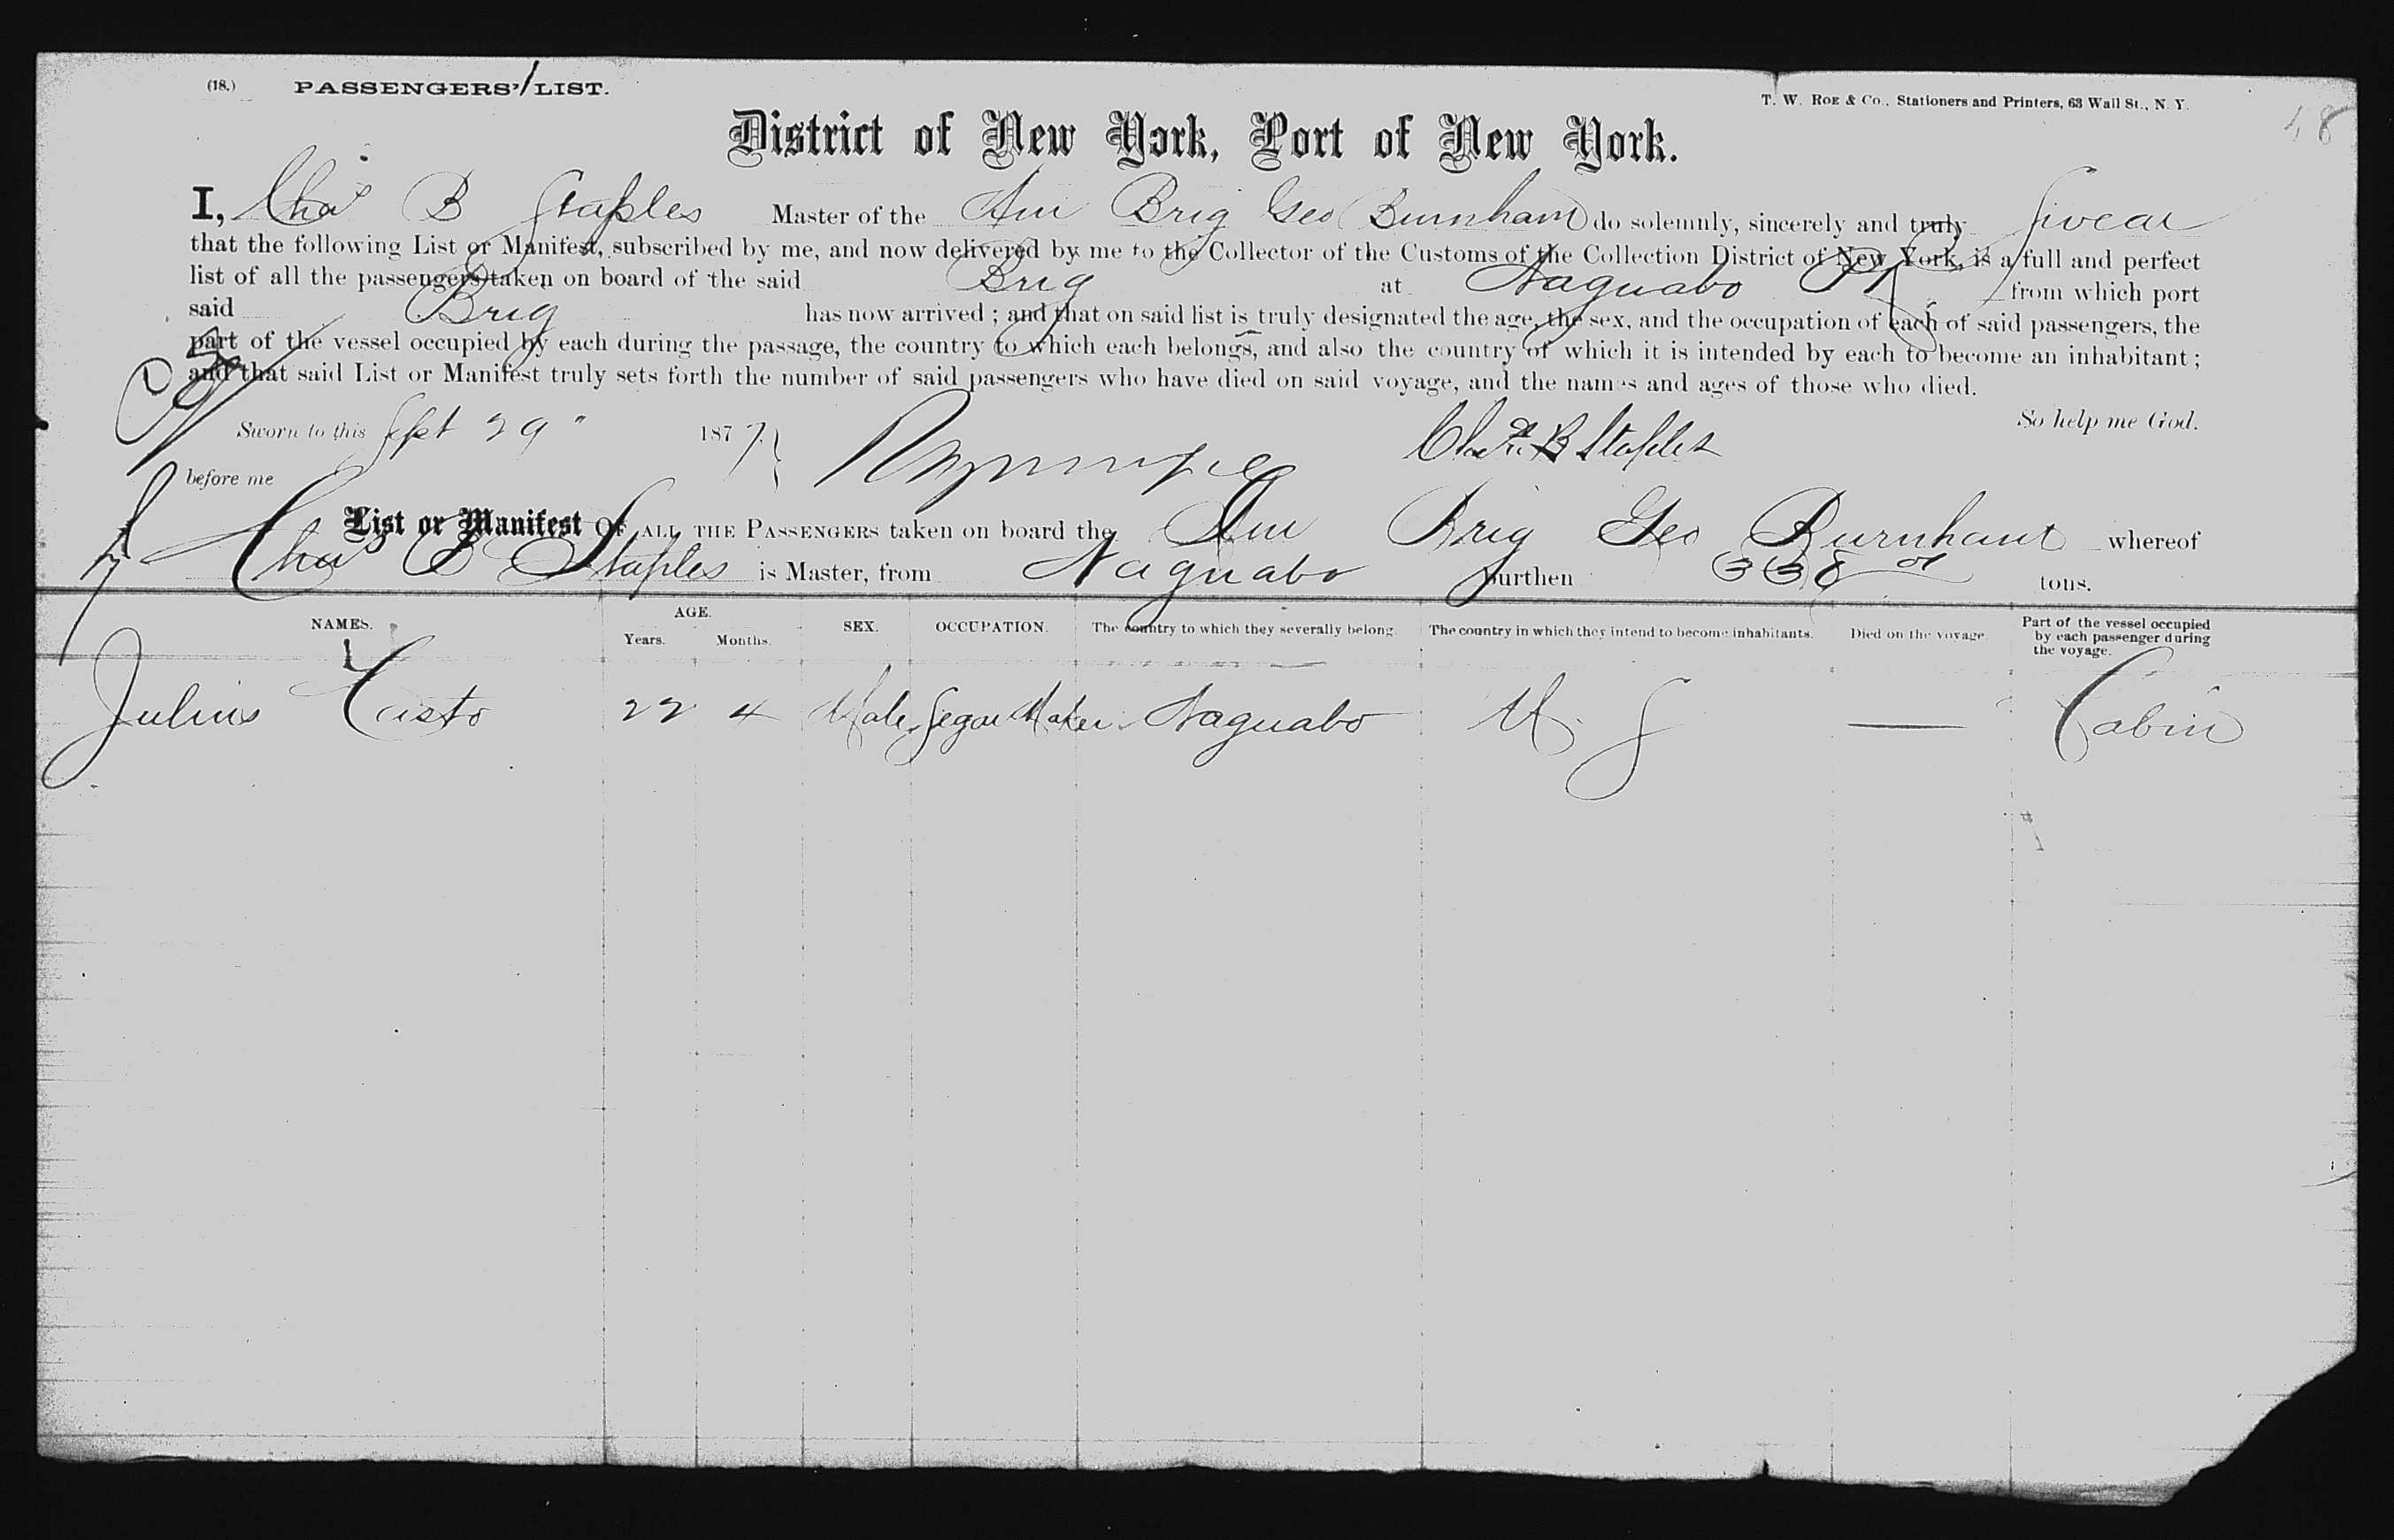 (18.) PASSENGERS' LIST.
T. W. ROE & Co., Stationers and Printers, 63 Wall St., N. Y.
18
District of New York, Port of New York.
I, Chas B Staples Master of the Am Brig Geo Burnham do solemnly, sincerely and truly swear
that the following List or Manifest, subscribed by me, and now delivered by me to the Collector of the Customs of the Collection District of New York, is a full and perfect
list of all the passengers taken on board of the said Brig at Naguabo PR from which port
said Brig has now arrived ; and that on said list is truly designated the age, the sex, and the occupation of each of said passengers, the
part of the vessel occupied by each during the passage, the country to which each belongs, and also the country of which it is intended by each to become an inhabitant ;
and that said List or Manifest truly sets forth the number of said passengers who have died on said voyage, and the names and ages of those who died.
So help me God.
Sworn to this Sept 29" 1877 Chas. B Staples
before me
List or Manifest OF ALL THE PASSENGERS taken on board the Am Brig Geo Burnham whereof
Chas B Staples is Master, from Naguabo burthen 338 tons.
NAMES. AGE. Years. Months. SEX. OCCUPATION. The country to which they severally belong. The country in which they intend to become inhabitants. Died on the voyage. Part of the vessel occupied by each passenger during the voyage.
Julius Casto 22 4 Male Segar Maker Naguabo U. S — Cabin